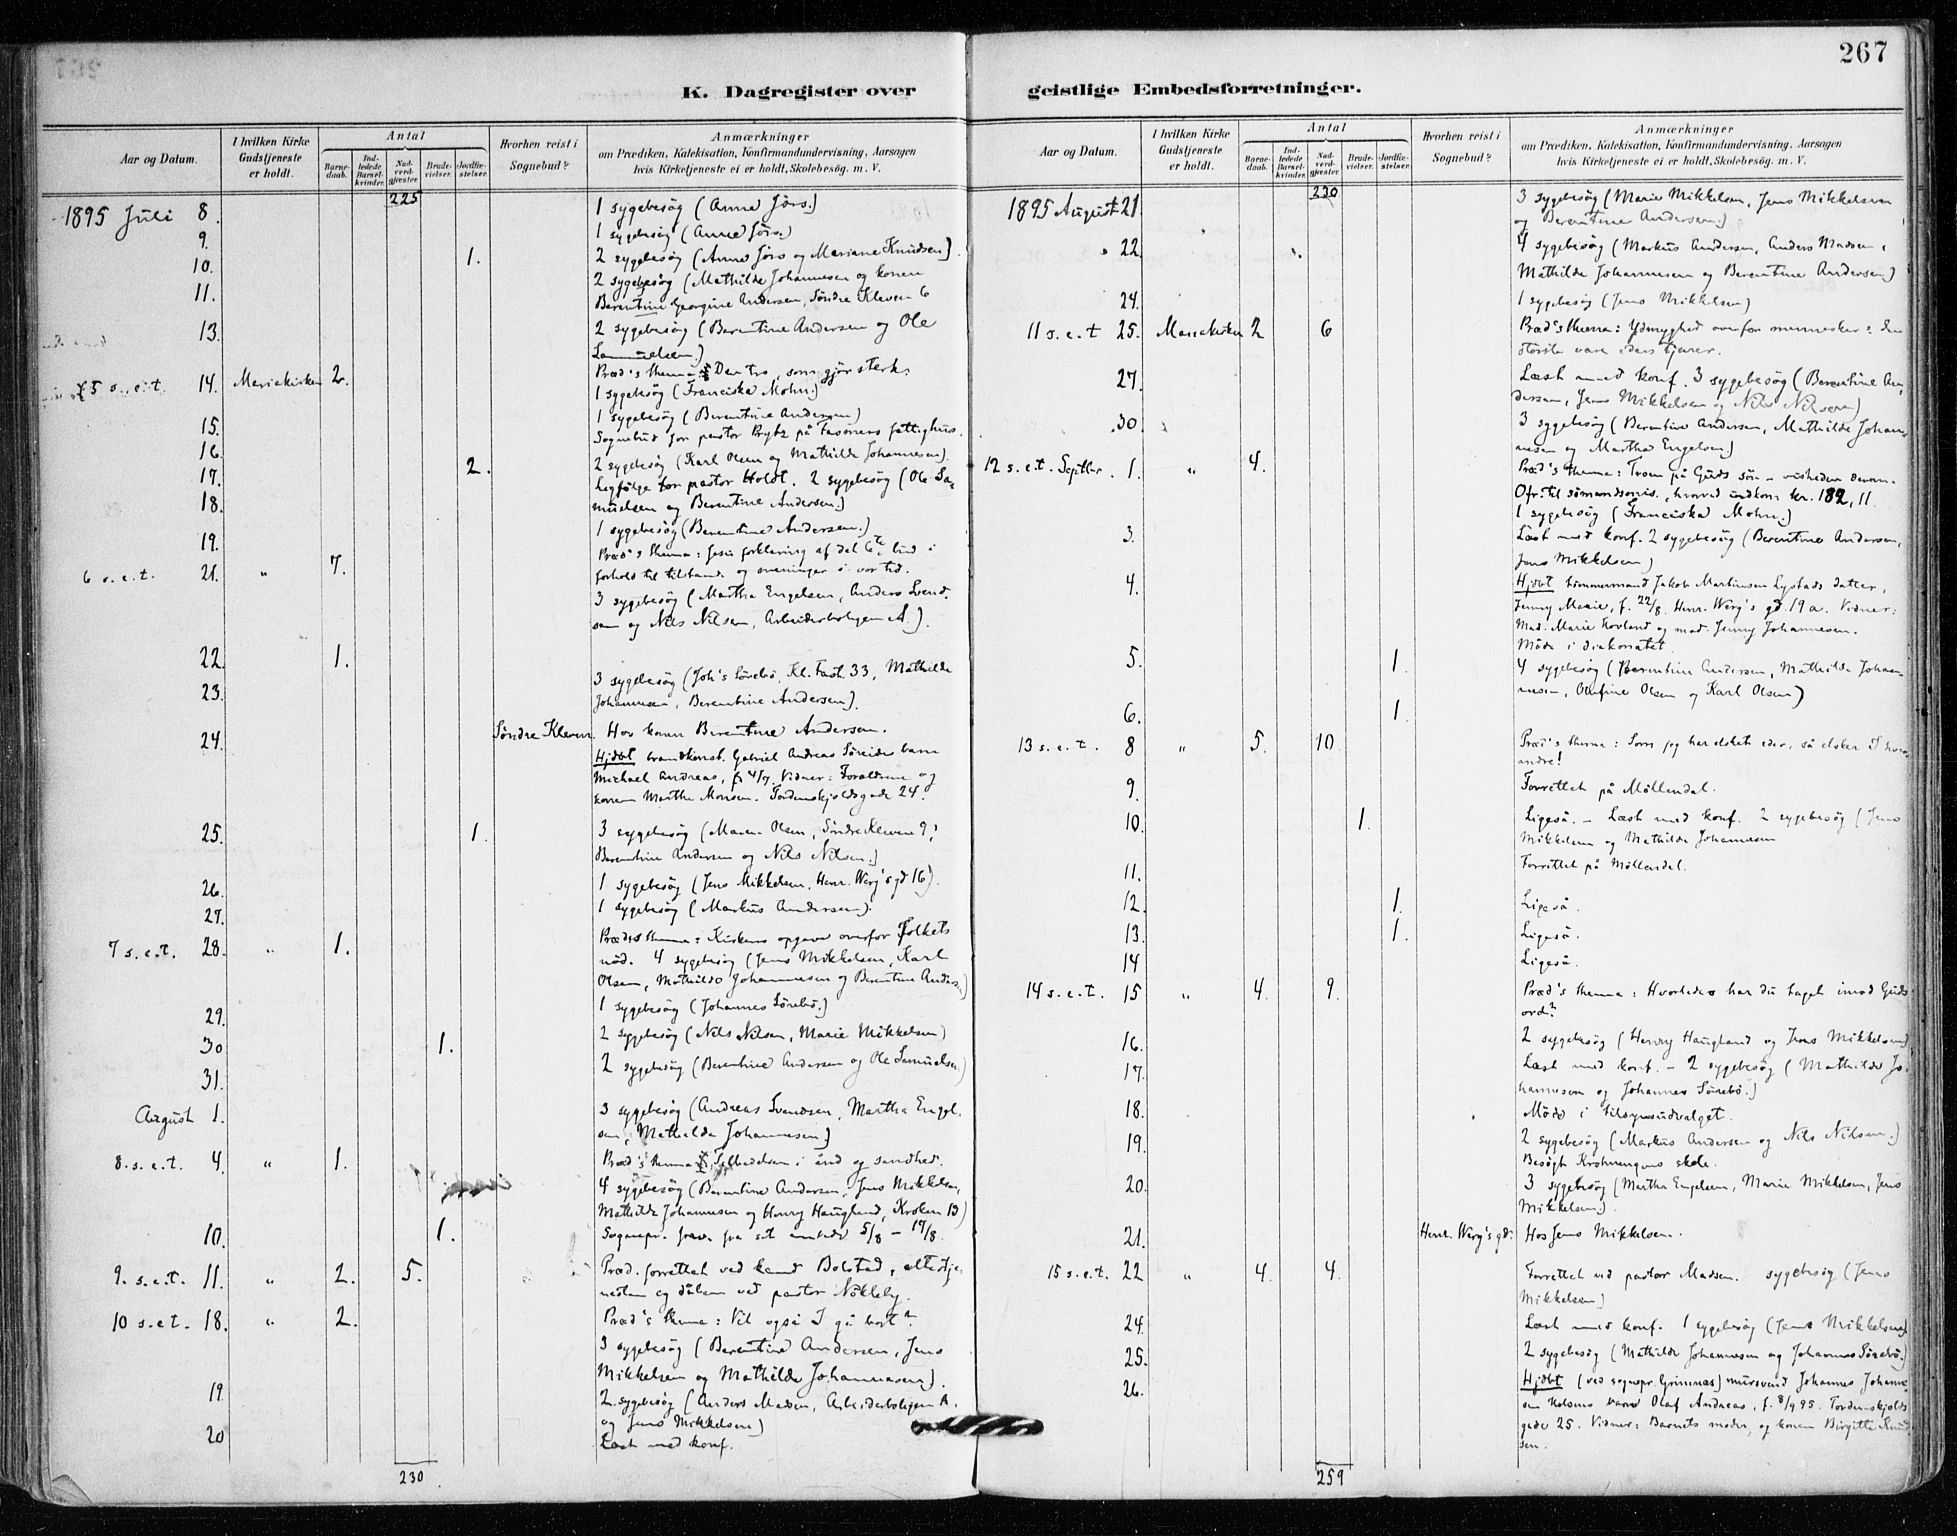 267
K. Dagregister over
Aar og Datum.
I hvilken Kirke Gudstjeneste er holdt.
Antal
Barne-daab.
Ind-ledede Barsel-kvinder.
Nad-verd-gjæster.
Brude-vielser.
Jordfæ-stelser.
Hvorhen reist i Sognebud?
Anmærkninger
om Prædiken, Katekisation, Konfirmandundervisning, Aarsagen
hvis Kirketjeneste ei er holdt, Skolebesøg. m. V.
225
1895 Juli 8. 1 sygebesög (Anne Jörs.)
9. 1 sygebesög (Anne Jörs.)
10. 1. 2 sygebesög (Anne Jörs og Mariane Knudsen).
11. 2 sygebesög (Mathilde Johannesen og konen
Berentine Georgine Andersen, Söndre Kleven 6
13. 2 sygebesög (Berentine Andersen og Ole
Samuelsen.)
5 s. e. t. 14. Mariekirken 2. Præd's thema: Den tro, som gjör sterk.
1 sygebesög (Franciska Mohn.)
15. 1 sygebesög (Berentine Andersen)
16. Sognebud for pastor Brytz på fattighus.
17. 2. 2 sygebesög (Karl Olsen og Mathilde Johannesen).
18. Ligfölge for pastor Holdt. 2 sygebesög (Ole Sa-
muelsen og Berentine Andersen.)
19. 1 sygebesög (Berentine Andersen.)
6 s. e. t. 21. " 7. Præd's thema: Jesu forklaring af det 6te bud i
forhold til tilstande og meninger i vor tid.
3 sygebesög (Martha Engelsen, Anders Svend-
sen og Nils Nilsen, Arbeiderboligen A.).
22. 1.
23. 3 sygebesög (Joh's Sörebö, Kl. Fast. 33, Mathilde
Johannesen, Berentine Andersen).
24. Söndre Kleven. Hos konen Berentine Andersen.
Hjdbt brandkonst. Gabriel Andreas barn
Michael Andreas, f. 4/7. Vidner: Forældrene og
konen Marthe Monsen. Tordenskjoldsgade 24.
25. 1. 3 sygebesög (Maren Olsen, Söndre Kleven 9,
Berentine Andersen og Nils Nilsen.)
26. 1 sygebesög (Jens Mikkelsen, Henr. Werg's gd 16).
27. 1 sygebesög (Markus Andersen).
7 s. e. t. 28. " 1. Præd's thema: Kirkens opgave overfor folkets
nöd. 4 sygebesög (Jens Mikkelsen, Karl
Olsen, Mathilde Johannesen og Berentine Andersen)
29. 1 sygebesög (Johannes Sörebö.)
30 1. 2 sygebesög (Nils Nilsen, Marie Mikkelsen)
31. 2 sygebesög (Berentine Andersen og Ole Samuelsen)
August 1. 3 sygebesög (Andreas Svendsen, Martha Engel-
sen, Mathilde Johannesen)
8. s. e. t. 4. " 1. Præd's thema: Tilbedelsen i ånd og sandhed.
4 sygebesög (Berentine Andersen, Jens Mikkelsen,
Mathilde Johannesen og Henry Haugland, Kroken 13)
10. 1. Sognepr. frav. fra sit embede 5/8 – 19/8.
9. s. e. t. 11. " 2. 5. Præd. forrettet ved kand Bolstad, altertje-
nesten og dåben ved pastor Nökleby.
10 s. e. t. 18. " 2. Præd's thema: Vil også I gå bort?
3 sygebesög (Berentine Andersen, Jens
Mikkelsen og Mathilde Johannesen).
19. 2 sygebesög (Anders Madsen, Arbeiderboligen A.
og Jens Mikkelsen)
20 Læst med konf.
230
geistlige Embedsforretninger.
Aar og Datum.
I hvilken Kirke Gudstjeneste er holdt.
Antal
Barne-daab.
Ind-ledede Barsel-kvinder.
Nad-verd-gjæster.
Brude-vielser.
Jordfæ-stelser.
Hvorhen reist i Sognebud?
Anmærkninger
om Prædiken, Katekisation, Konfirmandundervisning, Aarsagen
hvis Kirketjeneste ei er holdt, Skolebesøg. m. V.
230
1895 August 21. 3 sygebesög (Marie Mikkelsen, Jens Mikkelsen
og Berentine Andersen.)
22. 4 sygebesög (Markus Andersen, Anders Madsen,
Mathilde Johannesen og Berentine Andersen)
24. 1 sygebesög (Jens Mikkelsen)
11 s. e. t 25. Mariekirken 2 6 Præd's thema: Ydmyghed overfor mennesker: den
störste være eders tjener.
27. Læst med konf. 3 sygebesög (Berentine An-
dersen, Jens Mikkelsen og Nils Nilsen)
30. 3 sygebesög (Berentine Andersen, Mathilde Johan-
nesen og Martha Engelsen)
12 s. e. t. Septbr. 1. " 4. Præd's thema: Troen på Guds sön – visheden derom.
Ofr. til sömandsmis., hvorved indkom kr. 182,11.
1 sygebesög (Franciska Mohn.)
3. Læst med konf. 2 sygebesög (Berentine Andersen,
Jens Mikkelsen)
4. Hjdbt tömmermand Jakob Martinsen Lystads datter,
Jenny Marie, f. 22/8. Henr. Werg's gd. 19 a. Vidner:
Mad. Marie Hovland og mad. Jenny Johannesen.
Möde i diakonatet.
5. 1. 4 sygebesög (Berentine Andersen, Mathilde Johan-
nesen, Olufine Olsen og Karl Olsen)
6. 1
13 s. e. t. 8 " 5. 10. Præd's thema: Som jeg har elsket eder, så elsker I hver-
andre!
9. Forrettet på Möllendal.
10. 1. Ligeså. – Læst med konf. 2 sygebesög (Jens
Mikkelsen og Mathilde Johannesen
11. Forrettet på Möllendal.
12. 1. Ligeså.
13. 1. Ligeså.
14 Ligeså.
14 s. e. t. 15 " 4. 9. Præd's thema: Hvorledes har du taget imod Guds
ord?
16. 2 sygebesög (Henry Haugland og Jens Mikkelsen)
17. Læst med konf. – 2 sygebesög (Mathilde Jo-
hannesen og Johannes Sörebö.)
18. Möde i tilsynsudvalget.
19. 2 sygebesög (Markus Andersen og Nils Nilsen.)
Besögt Krohnengens skole.
20. 3 sygebesög (Martha Engelsen, Marie Mikkelsen, Jens
Mikkelsen)
21. Henr. Werg's gd. Hos Jens Mikkelsen.
15 s. e. t. 22 " 4. 4. Forrettet ved pastor Madsen. sygebesög (Jens
Mikkelsen)
24. Læst med konf. 1 sygebesög (Jens Mikkelsen)
25. 2 sygebesög (Mathilde Johannesen og Johannes Sörebö.)
26. Hjdbt (ved sognepr. Grimnæs) mursvend Johannes Johanne-
sen barn Olaf Andreas, f. 8/9 95. Tordenskjolds
gade 25. Vidner: Barnets moder, og konen Birgitte Knud-
sen.
259